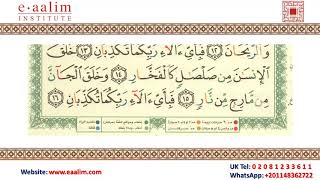 e-aalim
INSTITUTE
وَالرَّيْحَانُ ﴿١٢﴾ فَبِأَيِّ ءَالَآءِ رَبِّكُمَا تُكَذِّبَانِ ﴿١٣﴾ خَلَقَ
الْإِنسَٰنَ مِن صَلْصَٰلٍ كَالْفَخَّارِ ﴿١٤﴾ وَخَلَقَ الْجَآنَّ
مِن مَّارِجٍ مِّن نَّارٍ ﴿١٥﴾ فَبِأَيِّ ءَالَآءِ رَبِّكُمَا تُكَذِّبَانِ ﴿١٦﴾
UK Tel: 0 2 0 8 1 2 3 3 6 1 1
Website: www.eaalim.com
WhatsApp:+201148362722